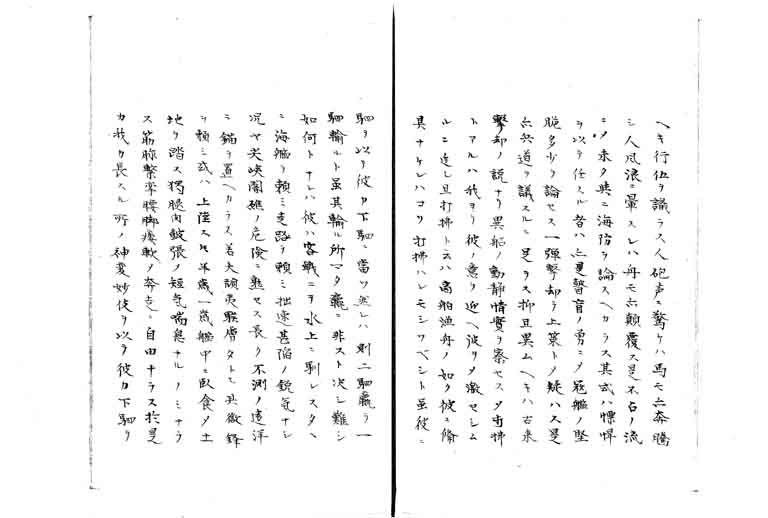 ヘキ行伍ヲ議ラス人砲声ニ驚ケハ馬モ亦奔騰
シ人風浪ニ暈スレハ舟モ亦顛覆ス是不占ノ流
ニメ未タ與ニ海防ヲ論スヘカラス其或ハ慓悍
ヲ以テ任スル者ハ亦是瞽盲ノ勇ニメ砲艦ノ堅
脆多少ヲ論セス一弾撃却ヲ上策トノ疑ハス是
亦兵道ヲ議スルニ足ラス抑且異ムヘキハ古来
撃却ノ説ナリ異船ノ動静情實ヲ察セスメ打拂
トアルハ我ヨリ彼ノ意ヲ迎ヘ彼ヲメ激セシム
ルニ近シ且打拂ト云ハ商舶漁舟ノ如ク彼ニ備
具ナケレハコソ打拂ハレモシツベシト雖彼ニ
駟ヲ以ラ彼カ下駟ニ當ツ然レハ則二駟贏ラ一
駟輸ルト雖其輸ル所マタ贏ニ非スト決シ難シ
如何トナレハ彼ハ客戦ニヲ水上ニ馴レスタヽ
ニ海艦ヲ頼ミ支路ヲ頼ミ拙速甚陷ノ鋭気ナシ
况ヤ尖峡闇礁ノ危険ニ熟セス長ク不測ノ遠洋
ニ錨ヲ置ヘカラス若夫頑夷膂膚タトヒ火徹鋒
ヲ頼ミ或ハ上陸スルモ半歳一歳艦中ニ臥食メ土
地ヲ踏ス獨腿肉皷張ノ短気喘息ナルノミナラ
ス筋脉繋牽腰脚痿軟メ奔走ニ自由ナラス於是
カ我カ長スル所ノ神変妙使ヲ以ラ彼カ下駟ヲ